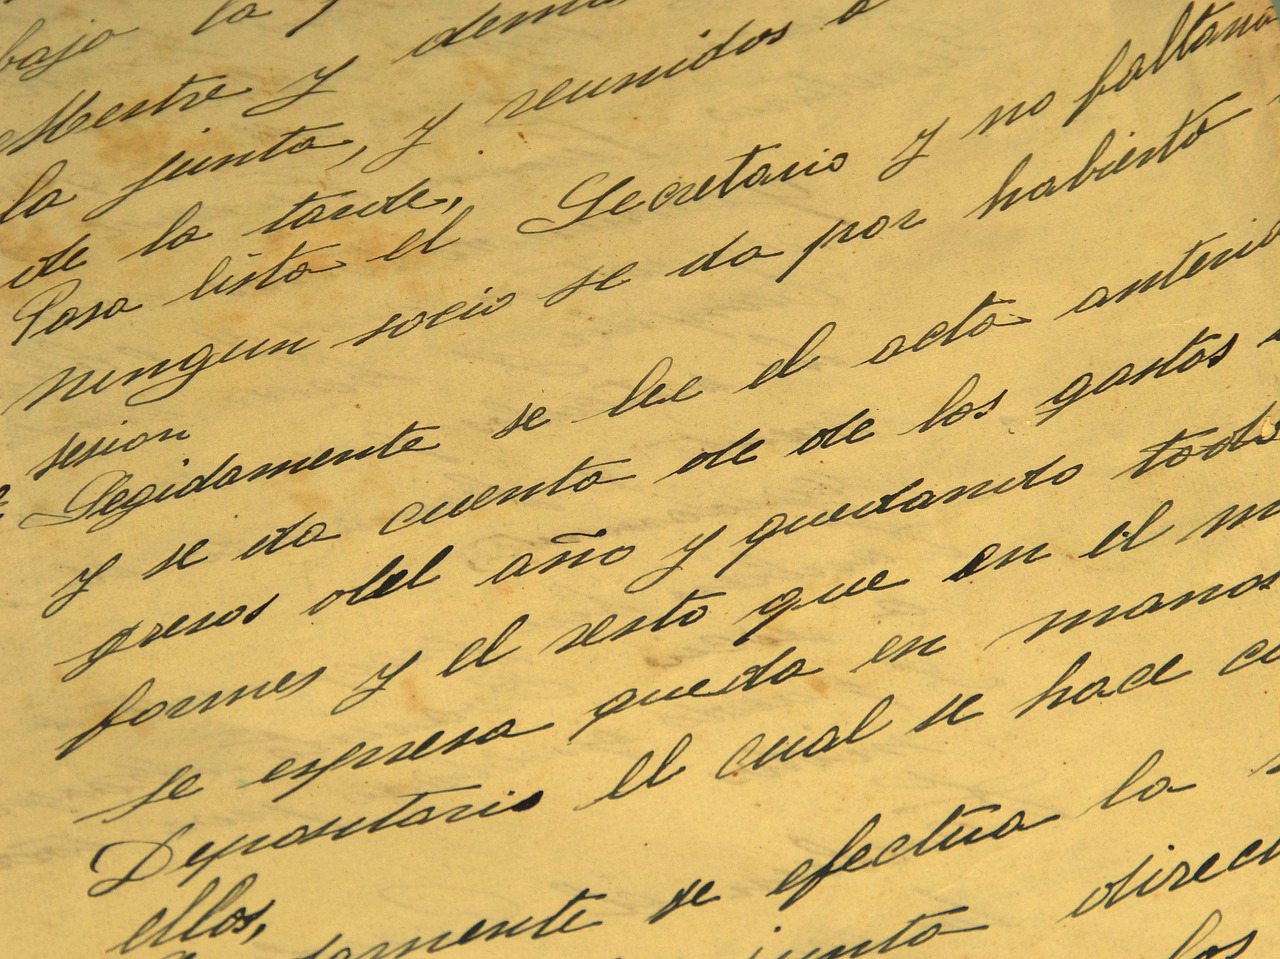 bajo la
Mestre y demas
la junta, y reunidos a
de la tarde,
Pasa lista el Secretario y no faltando
ningun socio se da por habierto
sesion
Segidamente se lee el acta anterior
y se da cuenta de de los gastos
gresos del año y quedando todos
formes y el resto que en el
se expresa queda en manos
Depositario el cual se hace
ellos,
damente se efectua la
junta direc
los